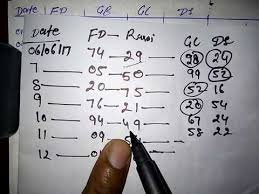 Date FD GB GL DS
Date FD Runi GL DS
06/06/17 — 74 — 29 98 24
7 — 05 — 50 99 52
8 — 20 — 75 52 16
9 — 76 — 21 28 54
10 — 94 — 49 67 24
11 — 09 58 22
12